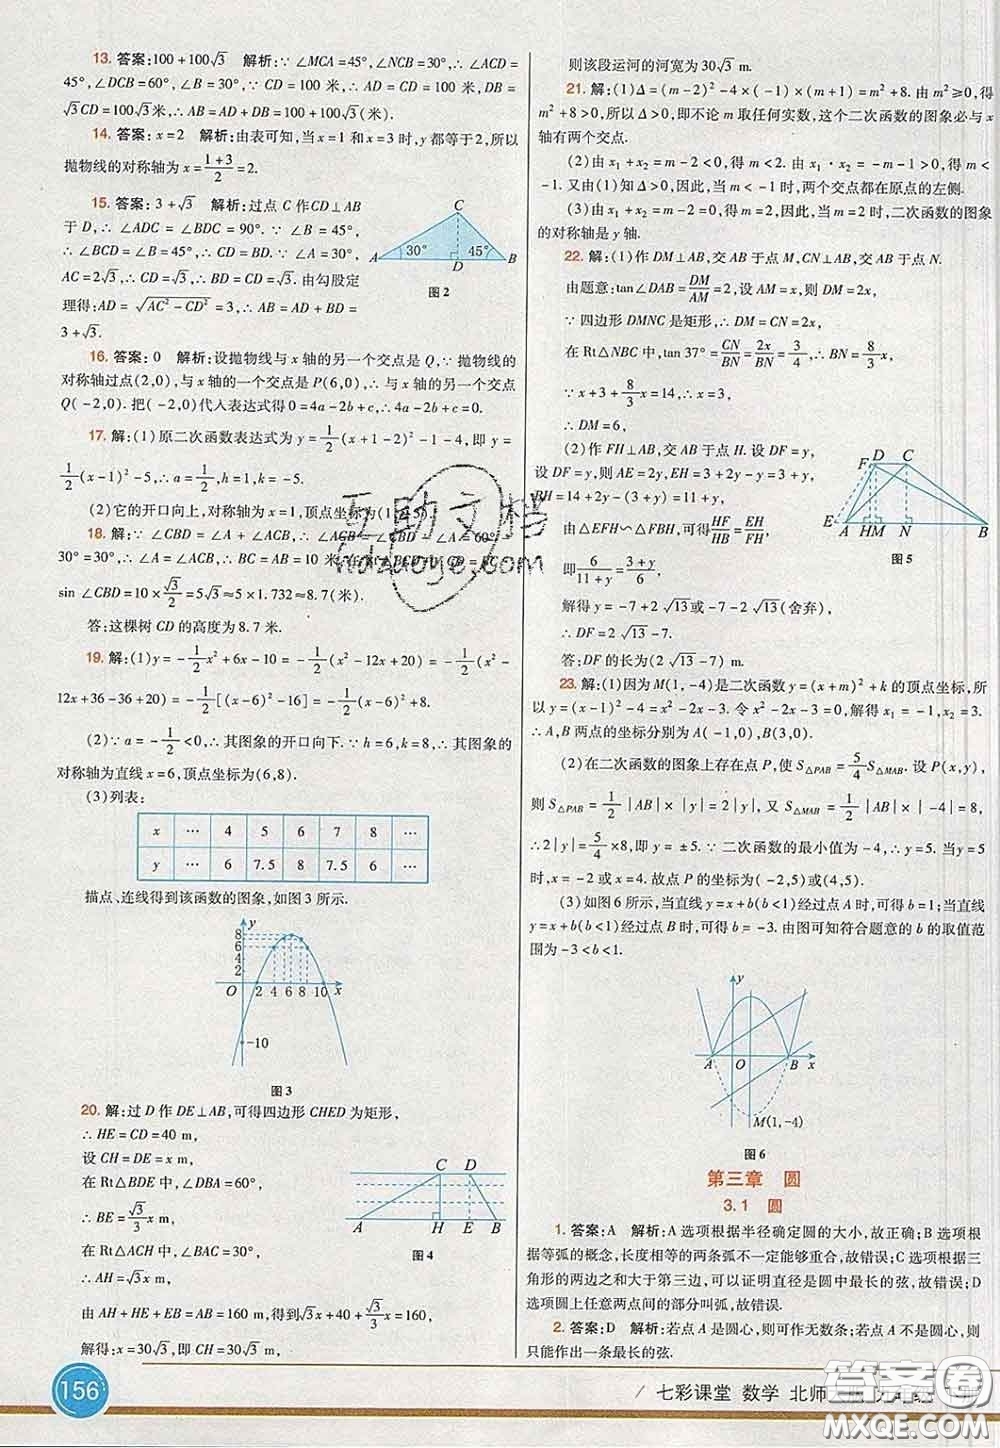 13. 答案:100+100√3 解析:∵∠MCA=45°,∠NCB=30°,∴∠ACD=
45°,∠DCB=60°,∠B=30°.∵CD=100米,∴AD=CD=100米,DB=
√3CD=100√3米,∴AB=AD+DB=100+100√3(米).
14. 答案:x=2 解析:由表可知,当x=1和x=3时,y都等于2,所以
抛物线的对称轴为x=(1+3)/2=2.
15. 答案:3+√3 解析:过点C作CD⊥AB
于D,∴∠ADC=∠BDC=90°.∵∠B=45°,
∴∠BCD=∠B=45°,∴CD=BD.∵∠A=30°,
AC=2√3,∴CD=√3,∴BD=CD=√3.由勾股定
理得:AD=√(AC²-CD²)=3,∴AB=AD+BD=
3+√3.
C
30° 45°
A D B
图2
16. 答案:0 解析:设抛物线与x轴的另一个交点是Q,∵抛物线的
对称轴过点(2,0),与x轴的一个交点是P(6,0),∴与x轴的另一个交点
Q(-2,0).把(-2,0)代入表达式得0=4a-2b+c,∴4a-2b+c=0.
17. 解:(1)原二次函数表达式为y=1/2(x+1-2)²-1-4,即y=
1/2(x-1)²-5,∴a=1/2,h=1,k=-5.
(2)它的开口向上,对称轴为x=1,顶点坐标为(1,-5).
18. 解:∵∠CBD=∠A+∠ACB,∴∠ACB=∠CBD-∠A=60°-
30°=30°,∴∠A=∠ACB,∴BC=AB=10米.在Rt△BCD中,CD=BC·
sin∠CBD=10×√3/2=5√3≈5×1.732≈8.7(米).
答:这棵树CD的高度为8.7米.
19. 解:(1)y=-1/2x²+6x-10=-1/2(x²-12x+20)=-1/2(x²-
12x+36-36+20)=-1/2[(x-6)²-16]=-1/2(x-6)²+8.
(2)∵a=-1/2<0,∴其图象的开口向下.∵h=6,k=8,∴此图象的
对称轴为直线x=6,顶点坐标为(6,8).
(3)列表:
x … 4 5 6 7 8 …
y … 6 7.5 8 7.5 6 …
描点、连线得到该函数的图象,如图3所示.
y
8
6
4
2
O 2 4 6 8 10 x
-10
图3
20. 解:过D作DE⊥AB,可得四边形CHED为矩形,
∴HE=CD=40 m,
设CH=DE=x m,
在Rt△BDE中,∠DBA=60°,
∴BE=√3/3x m,
在Rt△ACH中,∠BAC=30°,
∴AH=√3x m,
由AH+HE+EB=AB=160 m,得到√3x+40+√3/3x=160,
解得:x=30√3,即CH=30√3 m,
C D
A H E B
图4
则该段运河的河宽为30√3 m.
21. 解:(1)Δ=(m-2)²-4×(-1)×(m+1)=m²+8.由m²≥0,得
m²+8>0,所以Δ>0,即不论m取任何实数,这个二次函数的图象必与x
轴有两个交点.
(2)由x₁+x₂=m-2<0,得m<2.由x₁·x₂=-m-1>0,得m<
-1.又由(1)知Δ>0,因此,当m<-1时,两个交点都在原点的左侧.
(3)由x₁+x₂=m-2=0,得m=2,因此,当m=2时,二次函数的图象
的对称轴是y轴.
22. 解:(1)作DM⊥AB,交AB于点M,CN⊥AB,交AB于点N.
由题意:tan∠DAB=DM/AM=2,设AM=x,则DM=2x.
∵四边形DMNC是矩形,∴DM=CN=2x.
在Rt△NBC中,tan 37°=CN/BN=2x/BN=3/4,∴BN=8/3x,
∵x+3+8/3x=14,∴x=3,
∴DM=6.
(2)作FH⊥AB,交AB于点H.设DF=y,
设DF=y,则AE=2y,EH=3+2y-y=3+y,
BH=14+2y-(3+y)=11+y,
由△EFH∽△FBH,可得HF/HB=EH/FH,
即6/(11+y)=(3+y)/6,
解得y=-7+2√13或-7-2√13(舍弃),
∴DF=2√13-7.
答:DF的长为(2√13-7) m.
F D C
E A H M N B
图5
23. 解:(1)因为M(1,-4)是二次函数y=(x+m)²+k的顶点坐标,所
以y=(x-1)²-4=x²-2x-3.令x²-2x-3=0,解得x₁=-1,x₂=3.
∴A,B两点的坐标分别为A(-1,0),B(3,0).
(2)在二次函数的图象上存在点P,使S△PAB=5/4S△MAB.设P(x,y),
则S△PAB=1/2|AB|×|y|=2|y|,又S△MAB=1/2|AB|×|-4|=8,
∴2|y|=5/4×8,即y=±5.∵二次函数的最小值为-4,∴y=5.当y=5
时,x=-2或x=4.故点P的坐标为(-2,5)或(4,5).
(3)如图6所示,当直线y=x+b(b<1)经过点A时,可得b=1;当直线
y=x+b(b<1)经过点B时,可得b=-3.由图可知符合题意的b的取值范
围为-3<b<1.
y
A O B x
M(1,-4)
图6
第三章 圆
3.1 圆
1. 答案:A 解析:A选项根据半径确定圆的大小,故正确;B选项根
据等弧的概念,长度相等的两条弧不一定能够重合,故错误;C选项根据三
角形的两边之和大于第三边,可以证明直径是圆中最长的弦,故错误;D
选项圆上任意两点间的部分叫弧,故错误.
2. 答案:D 解析:若点A是圆心,则可作无数条;若点A不是圆心,则
只能作出一条最长的弦.
156
七彩课堂 数学 北师
互助文档
hdzuoye.com
答案圈
MXQE.COM